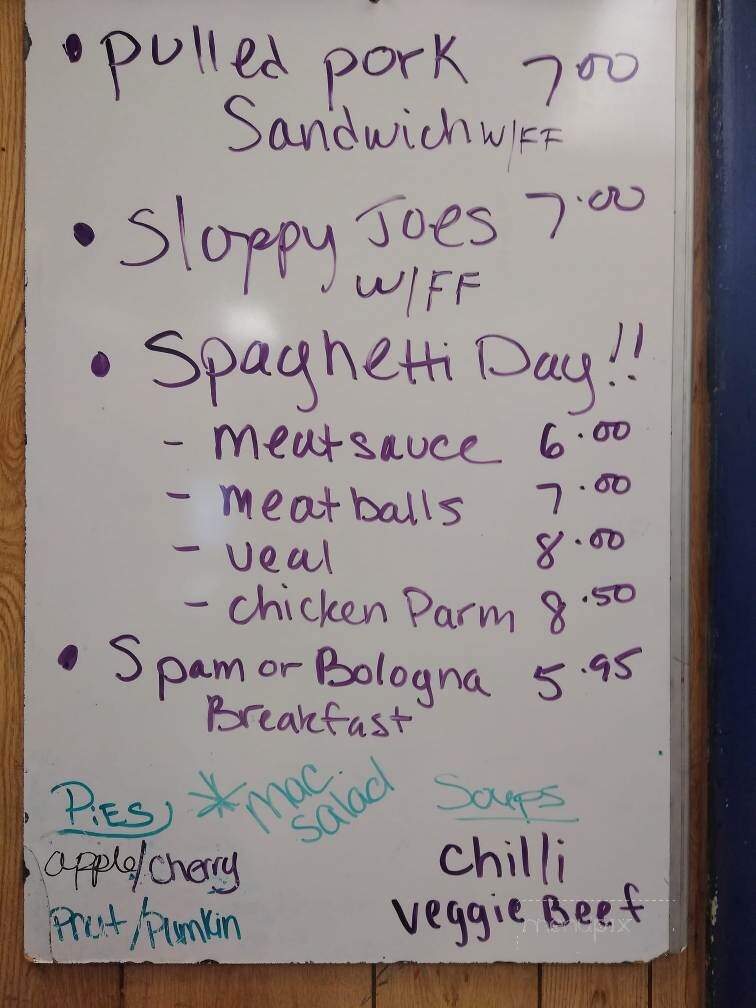 • Pulled pork 7.00
Sandwich W/FF
• Sloppy Joes 7.00
W/FF
• Spaghetti Day!!
- meatsauce 6.00
- meatballs 7.00
- veal 8.00
- chicken Parm 8.50
• Spam or Bologna 5.95
Breakfast
Pies
* mac
salad
Soups
apple/cherry
Chilli
Pnut/Pumkin
Veggie Beef
menupix